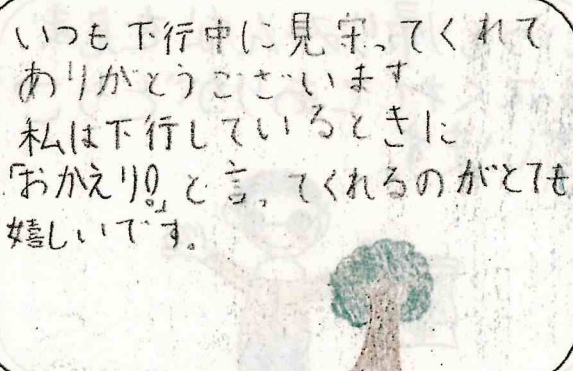 いつも下行中に見守ってくれて
ありがとうございます
私は下行しているときに
「おかえり!」と言ってくれるのがとても
嬉しいです。